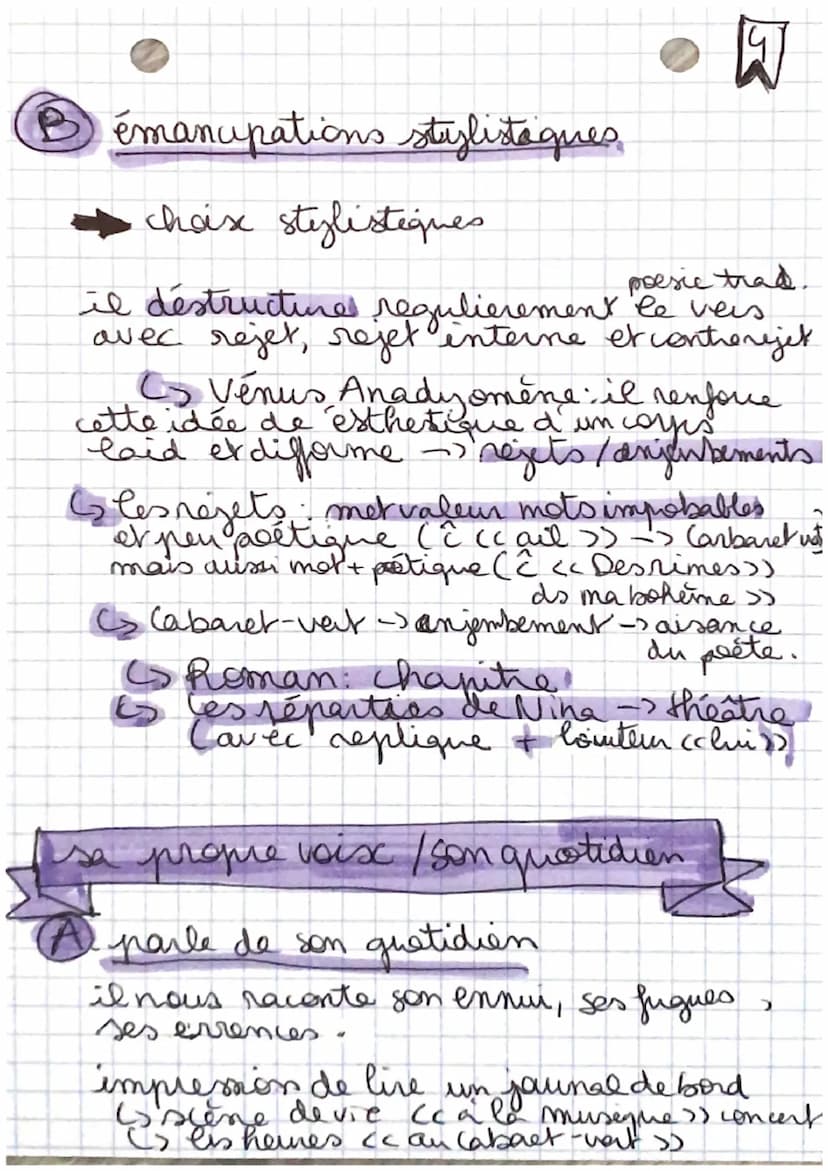 4
B émancipations stylistiques
➡ choix stylistiques
poesie trad.
il déstructure regulierement le vers
avec rejet, rejet interne et contrerejet
↳ Vénus Anadyomène : il renforce
cette idée de esthetique d'un corps
laid et difforme → rejets / enjambements
↳ les rejets : met valeur mots improbables
et peu poétique (ĉ << ail >> → Carbaret vert
mais aussi mot + poétique (ĉ << Des rimes >>
ds ma bohème >>
↳ Cabaret-vert → enjembement → aisance
du poète.
↳ Roman : chapitre
↳ les réparties de Nina → théâtre
(avec replique + << lui >>)
sa propre voix / son quotidien
A parle de son quotidien
il nous raconte son ennui, ses fugues,
ses errences.
impression de lire un journal de bord
↳ scène de vie << à la musique >> concert
↳ les heures << au Cabaret-vert >>